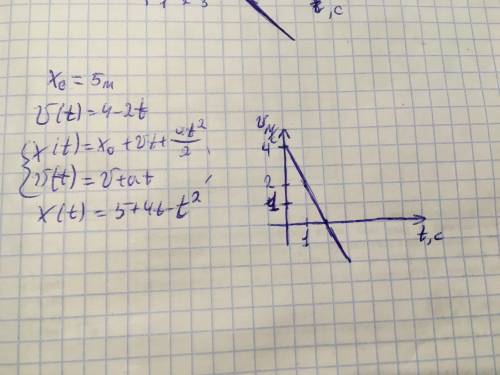 1 2 3 t, c
x₀ = 5 м
v(t) = 4 - 2t
x(t) = x₀ + vt + at²/2 ;
v(t) = v + at ;
x(t) = 5 + 4t - t²
4
2
1
1
t, c